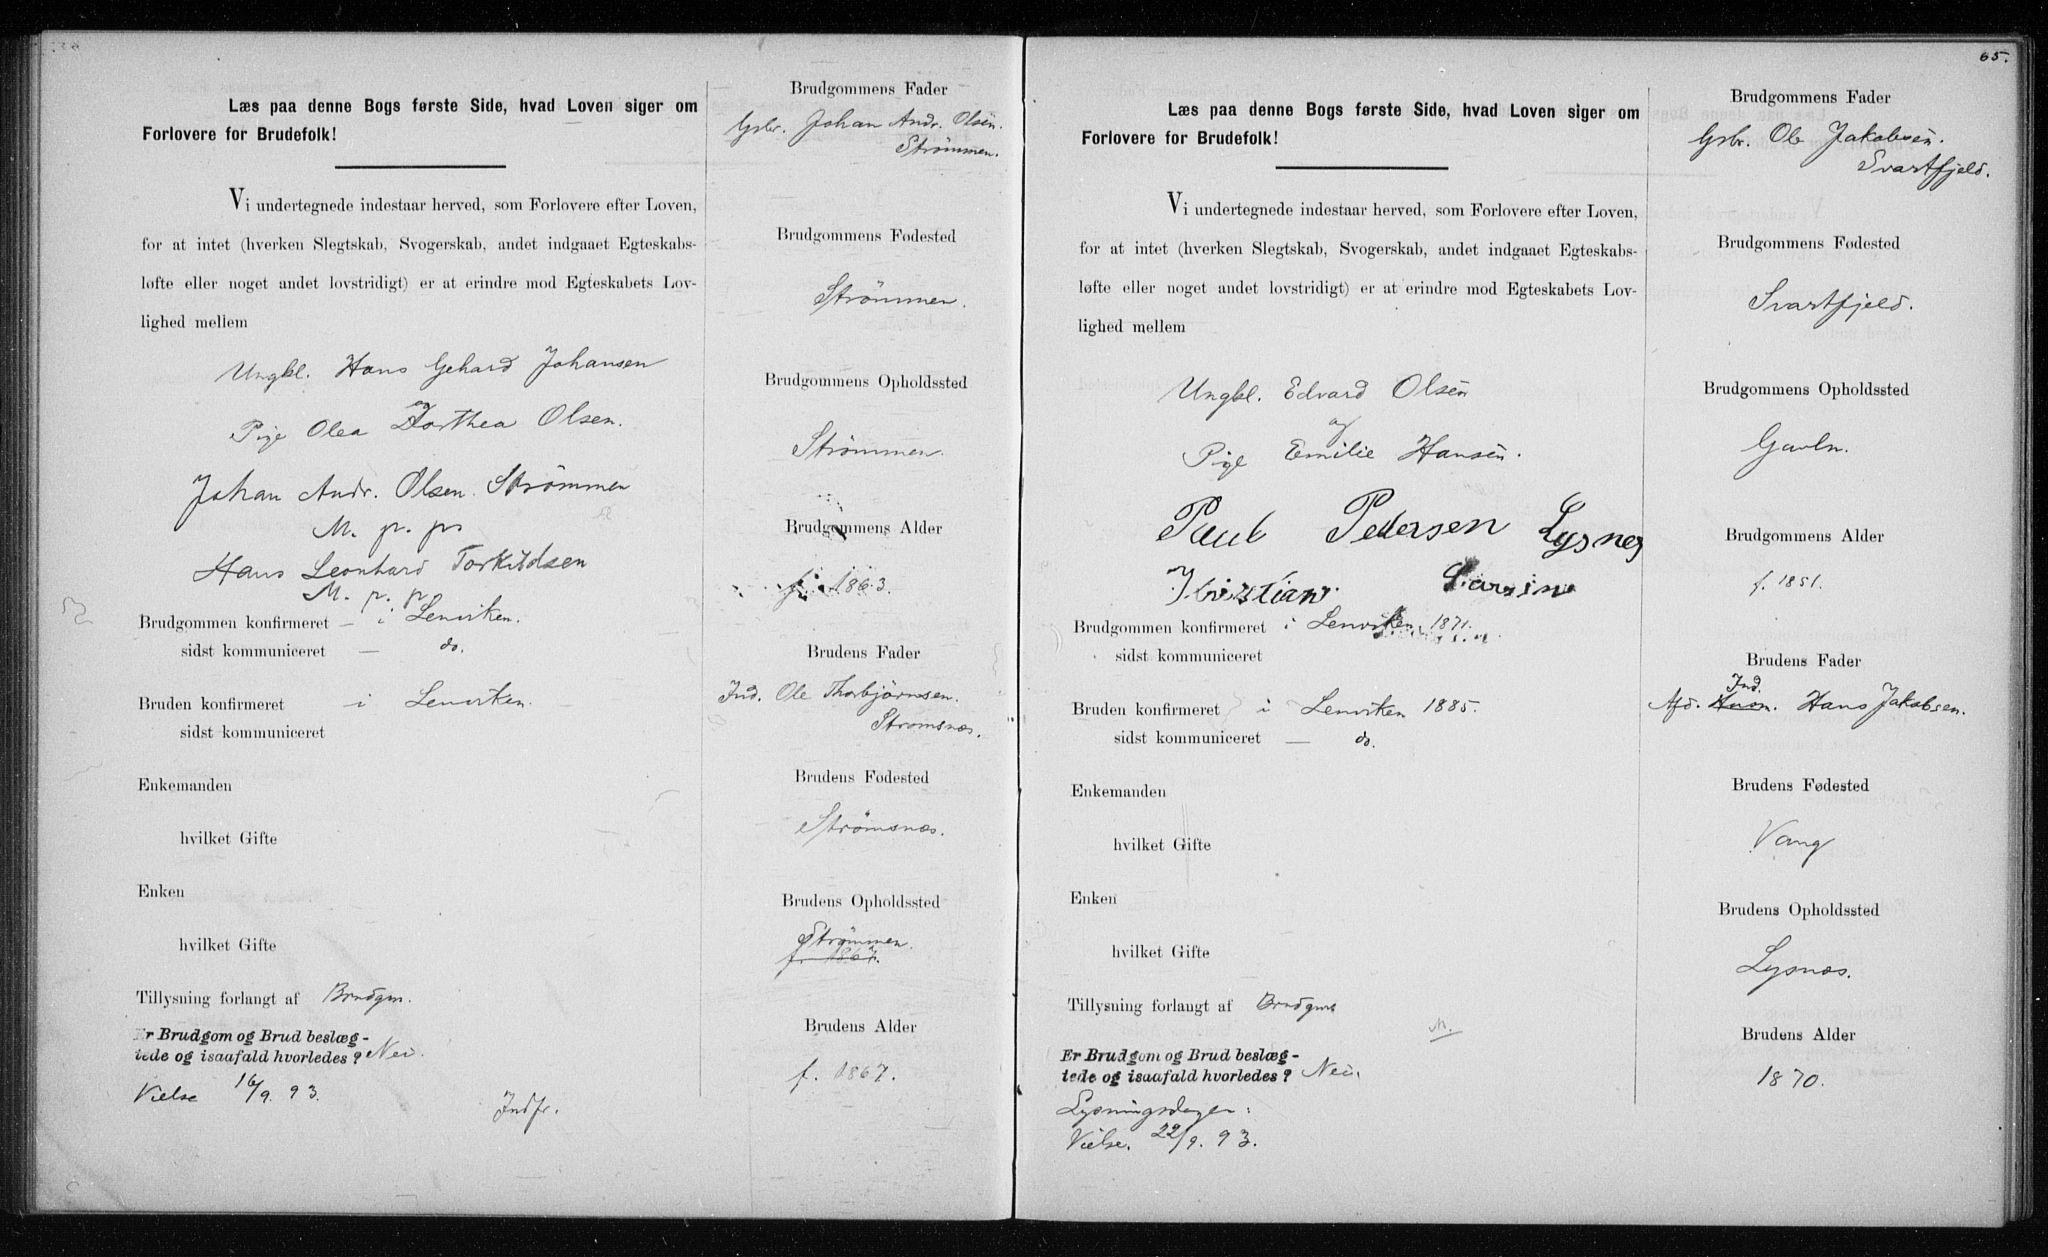 Læs paa denne Bogs første Side, hvad Loven siger om
Forlovere for Brudefolk!
Vi undertegnede indestaar herved, som Forlovere efter Loven,
for at intet (hverken Slegtskab, Svogerskab, andet indgaaet Egteskabs-
løfte eller noget andet lovstridigt) er at erindre mod Egteskabets Lov-
lighed mellem
Ungkl. Hans Gehard Johansen
og
Pige Olea Dorthea Olsen.
Johan Andr. Olsen Strömmen
M. p. p.
Hans Leonhard Torkildsen
M. p. p.
Brudgommen konfirmeret – i Lenviken.
sidst kommuniceret — do.
Bruden konfirmeret i Lenviken.
sidst kommuniceret
Enkemanden
hvilket Gifte
Enken
hvilket Gifte
Tillysning forlangt af Brudgm.
Er Brudgom og Brud beslæg-
tede og isaafald hvorledes? Nei.
Vielse 16/9. 93.
Indfr.
Brudgommens Fader
Gbr. Johan Andr. Olsen.
Strömmen.
Brudgommens Fødested
Strömmen.
Brudgommens Opholdssted
Strömmen.
Brudgommens Alder
f. 1863.
Brudens Fader
Ind. Ole Thorbjörnsen.
Strömsnæs.
Brudens Fødested
Strömsnæs.
Brudens Opholdssted
Strömmen.
f. 1867.
Brudens Alder
f. 1867.
65.
Læs paa denne Bogs første Side, hvad Loven siger om
Forlovere for Brudefolk!
Vi undertegnede indestaar herved, som Forlovere efter Loven,
for at intet (hverken Slegtskab, Svogerskab, andet indgaaet Egteskabs-
løfte eller noget andet lovstridigt) er at erindre mod Egteskabets Lov-
lighed mellem
Ungkl. Edvard Olsen
og
Pige Emilie Hansen.
Paul Pedersen Lysnes
Kristian
Brudgommen konfirmeret i Lenviken 1871.
sidst kommuniceret
Bruden konfirmeret i Lenviken 1885.
sidst kommuniceret — do.
Enkemanden
hvilket Gifte
Enken
hvilket Gifte
Tillysning forlangt af Brudgm
M.
Er Brudgom og Brud beslæg-
tede og isaafald hvorledes? Nei.
Lysningsdager:
Vielse. 22/9. 93.
Brudgommens Fader
Gbr. Ole Jakobsen.
Svartfjeld.
Brudgommens Fødested
Svartfjeld.
Brudgommens Opholdssted
Gavln.
Brudgommens Alder
f. 1851.
Brudens Fader
Ind.
Afd. Husm. Hans Jakobsen.
Brudens Fødested
Vang
Brudens Opholdssted
Lysnæs.
Brudens Alder
1870.